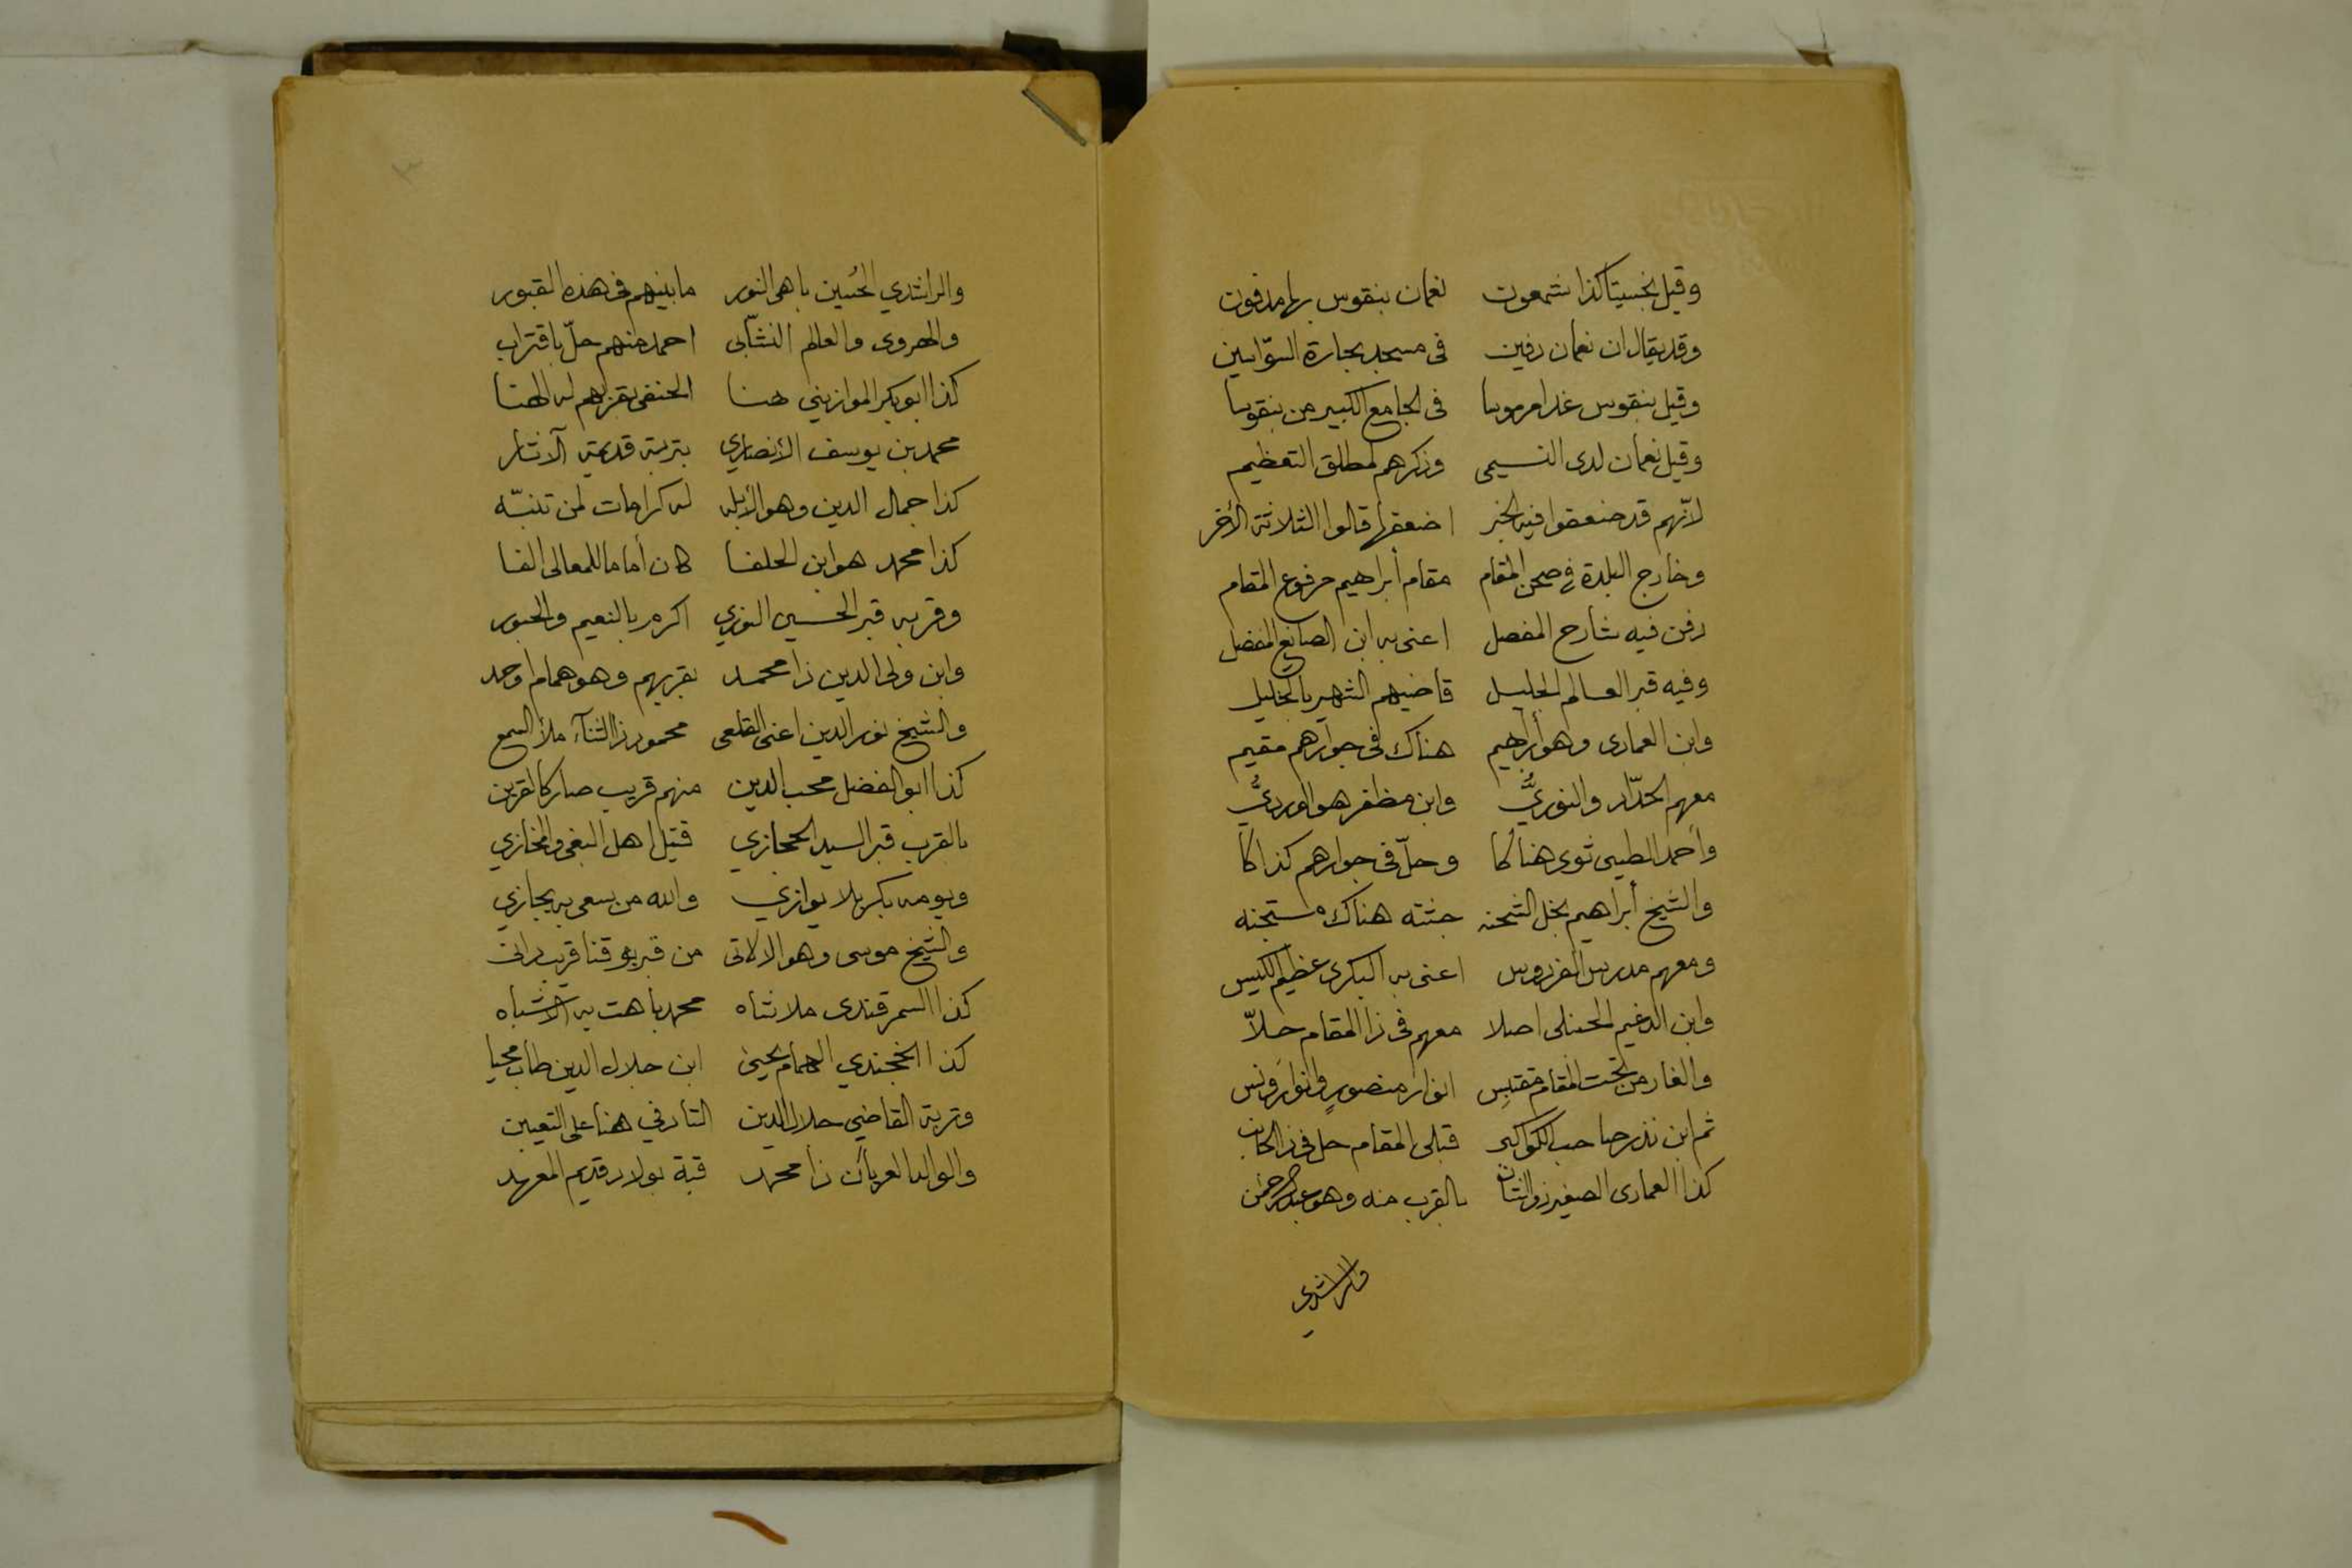 وقيل بخسيتا كذا شمعون نعمان بنقوس بها مدفون
وقد يقال ان نعمان دفين فى مسجد بحارة السوّاسين
وقيل بنقوس غدا مرموسا فى الجامع الكبير من بنقوسا
وقيل نعمان لدى النسيمى وذكرهم لمطلق التعظيم
لانّهم قد ضعفوا فيه الخبر اضعفها قالوا الثلاثة الأخر
وخارج البلدة فى صحن المقام مقام أبراهيم مرفوع المقام
دفن فيه شارح المفصل اعنى به ابن الصايغ المفضل
وفيه قبر العالم الجليل قاضيهم الشهير بالخليل
وابن العمادى وهو أبراهيم هناك فى جوارهم مقيم
معهم الحدّاد والنوريُّ وابن مظفر هو الورديُّ
وأحمد الطيبى ثوى هناكا وحلّ فى جوارهم كذاكا
والشيخ أبراهيم نجل الشحنه جثته هناك مستجنه
ومعهم مدرس الفردوس اعنى به البكرى عظيم الكيس
وابن الدغيم الحنبلى اصلا معهم فى ذا المقام حلاّ
والغار من تحت المقام مقتبس انوار منصور وانوار ونس
ثم ابن نذر صاحب الكواكب قبلى المقام حل فى ذا الجانب
كذا العمادى الصغير ذو الشان بالقرب منه وهو عبد الرحمن
والراشدي
والراشدي الحُسين باهى النور ما بينهم فى هذه القبور
والهروى والعالم النشّابى احمد منهم حلّ باقتراب
كذا ابو بكر الموازينى هنا الحنفى بقربهم له الهنا
محمد بن يوسف الأنصاري بتربة قديمة الآثار
كذا جمال الدين وهو الأبله له كرامات لمن تنبّه
كذا محمد هو ابن الحلفا كان أماما للمعالى الفا
وقربه قبر الحسين النوري اكرم بالنعيم والحبور
وابن ولى الدين ذا محمد بقربهم وهو همام اوحد
والشيخ نور الدين اعنى القلعى محمود ذا الثنآء ملأ السمع
كذا ابو الفضل محب الدين منهم قريب صار كالقرين
بالقرب قبر السيد الحجازي قتيل اهل البغى والمخازي
ويومه بكربلا يوازي والله من يسعى به يجازي
والشيخ موسى وهو الالاتى من قبر بوقنا قريب دانى
كذا السمرقندى ملا شاه محمد باهت به الاشباه
كذا الخجندي الهمام يحيى ابن جلال الدين طاب محيا
وتربة القاضي جلال الدين التادفي هنا على التعيين
والوالد العريان ذا محمد قبة بولاد قديم المعهد